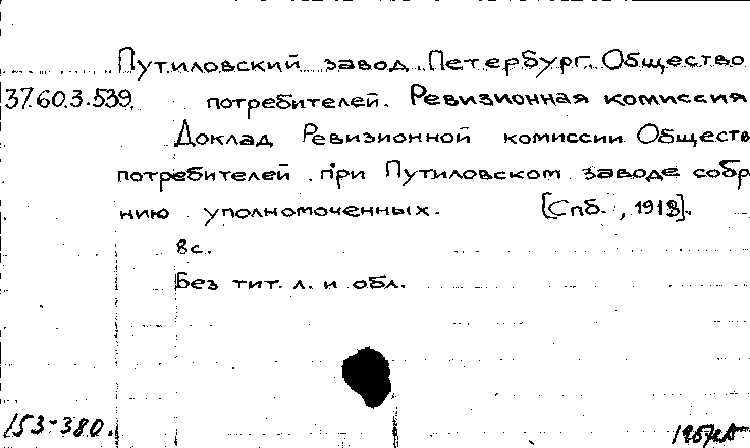 Путиловский завод. Петербург. Общество
37.60.3.539. потребителей. Ревизионная комиссия
Доклад Ревизионной комиссии Обществ
потребителей при Путиловском заводе собр
нию уполномоченных. [Спб., 1913].
8с.
Без тит. л. и обл.
153-380.